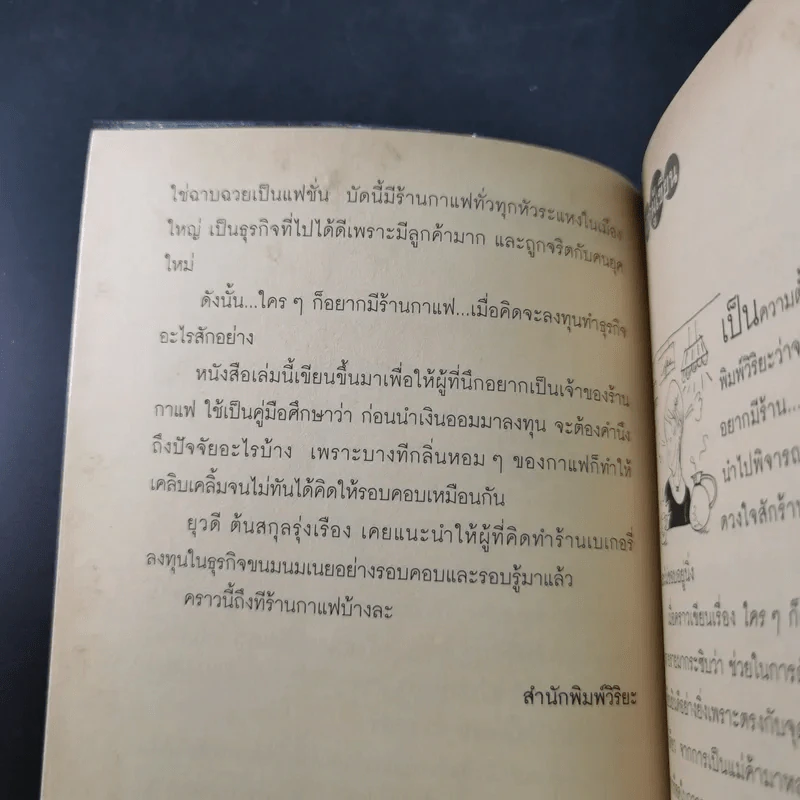 ใช่ฉาบฉวยเป็นแฟชั่น บัดนี้มีร้านกาแฟทั่วทุกหัวระแหงในเมือง
ใหญ่ เป็นธุรกิจที่ไปได้ดีเพราะมีลูกค้ามาก และถูกจริตกับคนยุค
ใหม่
ดังนั้น...ใคร ๆ ก็อยากมีร้านกาแฟ...เมื่อคิดจะลงทุนทำธุรกิจ
อะไรสักอย่าง
หนังสือเล่มนี้เขียนขึ้นมาเพื่อให้ผู้ที่นึกอยากเป็นเจ้าของร้าน
กาแฟ ใช้เป็นคู่มือศึกษาว่า ก่อนนำเงินออมมาลงทุน จะต้องคำนึง
ถึงปัจจัยอะไรบ้าง เพราะบางทีกลิ่นหอม ๆ ของกาแฟก็ทำให้
เคลิบเคลิ้มจนไม่ทันได้คิดให้รอบคอบเหมือนกัน
ยุวดี ต้นสกุลรุ่งเรือง เคยแนะนำให้ผู้ที่คิดทำร้านเบเกอรี่
ลงทุนในธุรกิจขนมนมเนยอย่างรอบคอบและรอบรู้มาแล้ว
คราวนี้ถึงทีร้านกาแฟบ้างละ
สำนักพิมพ์วิริยะ
เป็นความตั้
พิมพ์วิริยะว่าจ
อยากมีร้าน...
นำไปพิจารณ
ดวงใจสักร้าน
เมื่อคราวเขียนเรื่อง ใคร ๆ ก็อ
มากระซิบว่า ช่วยในการ
อย่างยิ่งเพราะตรงกับจุด
จากการเป็นแม่ค้ามาห